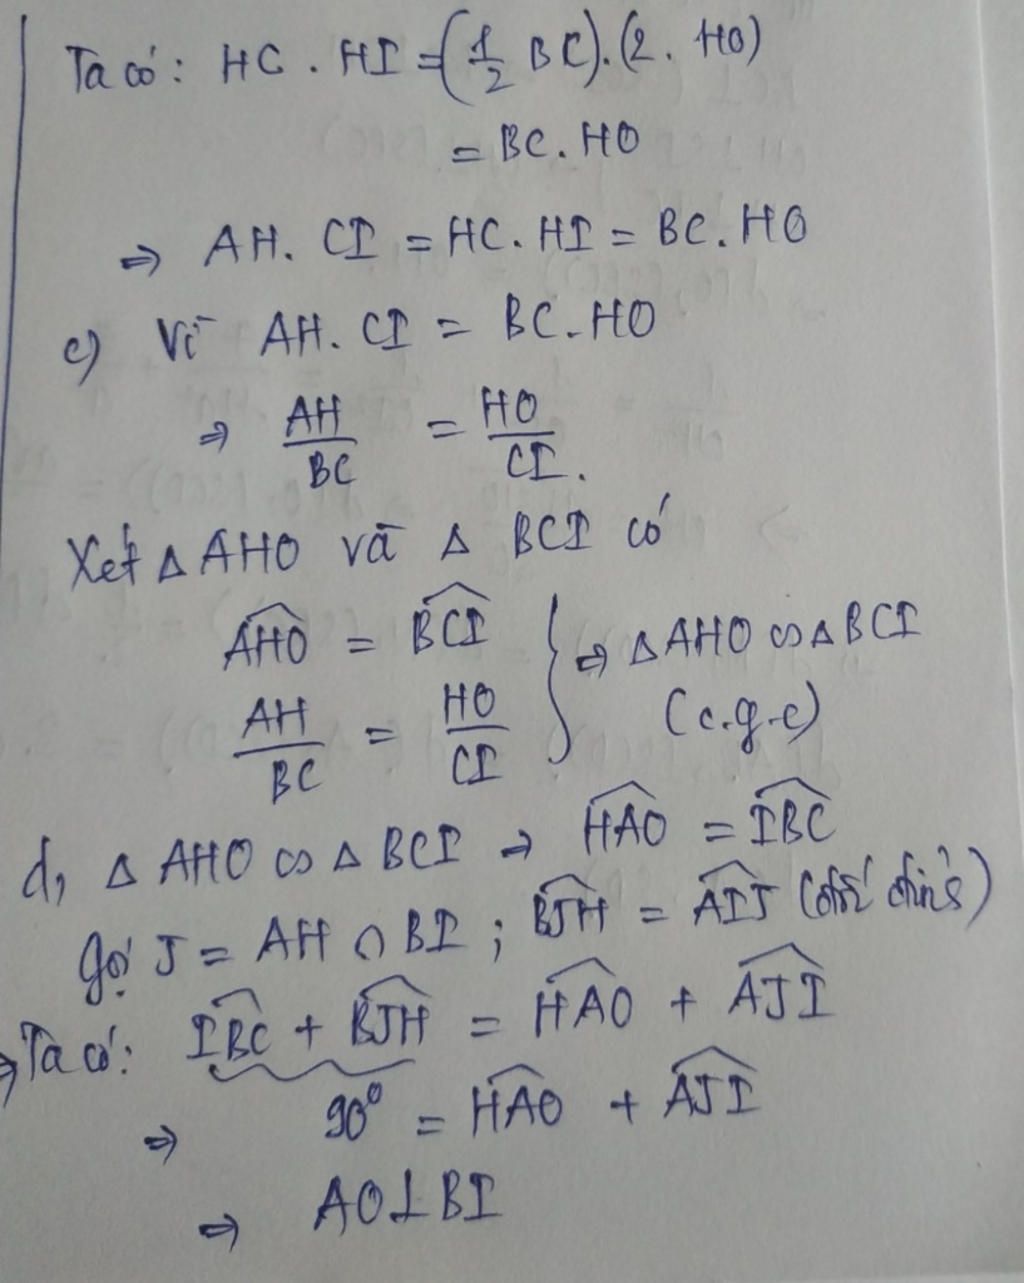 Ta có: HC . HI = (1/2 BC).(2. HO)
= BC. HO
⇒ AH. CI = HC. HI = BC. HO
c) Vì AH. CI = BC. HO
⇒ AH/BC = HO/CI.
Xét Δ AHO và Δ BCI có
\widehat{AHO} = \widehat{BCI}
AH/BC = HO/CI } ⇒ Δ AHO ∽ Δ BCI
(c.g.c)
d, Δ AHO ∽ Δ BCI → \widehat{HAO} = \widehat{IBC}
Gọi J = AH ∩ BI ; \widehat{BJH} = \widehat{AIJ} (đối đỉnh)
⇒ Ta có: \widehat{IBC} + \widehat{BJH} = \widehat{HAO} + \widehat{AJI}
⇒ 90° = \widehat{HAO} + \widehat{AJI}
⇒ AO⊥BI